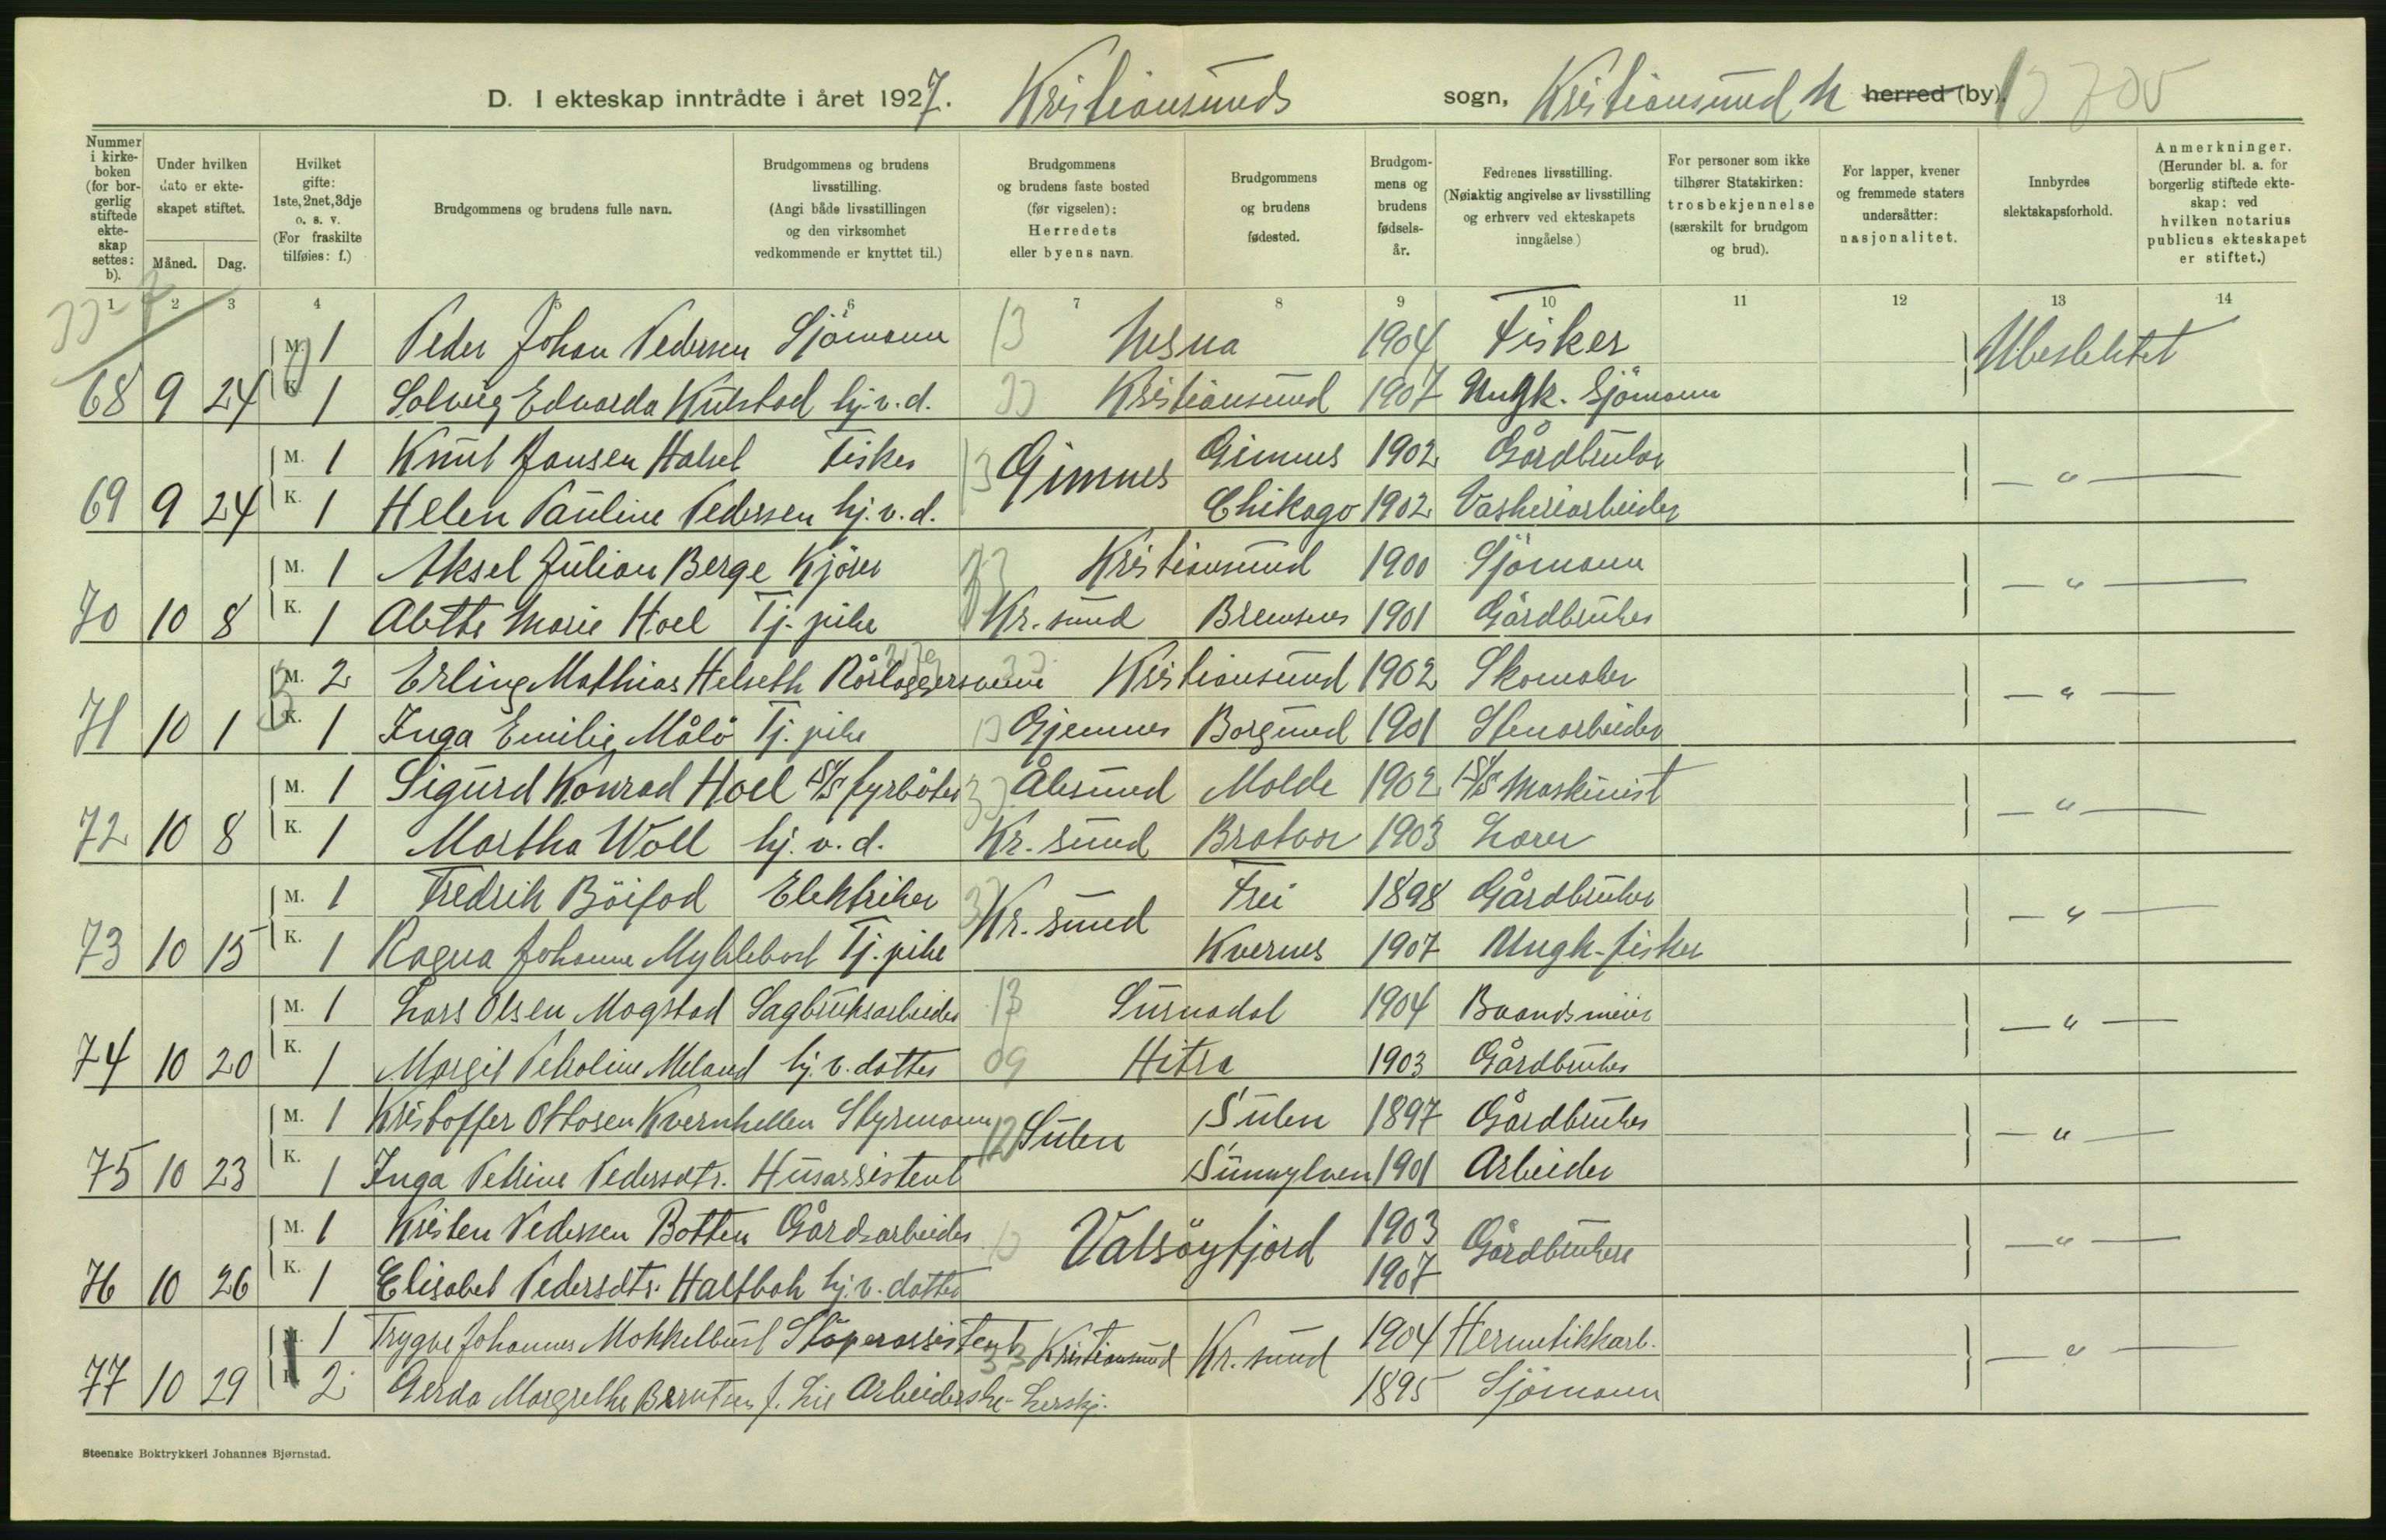 D. I ekteskap inntrådte i året 1927. Kristiansunds sogn, Kristiansund N herred (by).
Nummer i kirkeboken (for borgerlig stiftede ekteskap settes: b).
Under hvilken dato er ekteskapet stiftet.
Måned. Dag.
Hvilket gifte: 1ste, 2net, 3dje o. s. v. (For fraskilte tilføies: f.)
Brudgommens og brudens fulle navn.
Brudgommens og brudens livsstilling. (Angi både livsstillingen og den virksomhet vedkommende er knyttet til.)
Brudgommens og brudens faste bosted (før vigselen): Herredets eller byens navn.
Brudgommens og brudens fødested.
Brudgommens og brudens fødselsår.
Fedrenes livsstilling. (Nøiaktig angivelse av livsstilling og erhverv ved ekteskapets inngåelse)
For personer som ikke tilhører Statskirken: trosbekjennelse (særskilt for brudgom og brud).
For lapper, kvener og fremmede staters undersåtter: nasjonalitet.
Innbyrdes slektskapsforhold.
Anmerkninger. (Herunder bl. a. for borgerlig stiftede ekteskap: ved hvilken notarius publicus ekteskapet er stiftet.)
1 2 3 4 5 6 7 8 9 10 11 12 13 14
M. 1 Peder Johan Pedersen Sjömann 13 Nesna 1904 Fisker Ubeslektet
68 9 24 K. 1 Solveig Edvarda Kulstad hj.v.d. Kristiansund 1907 Ungk. Sjömann
M. 1 Knut Jansen Halsel Fisker 13 Gimnes Gimnes 1902 Gårdbruker — " —
69 9 24 K. 1 Helen Pauline Pedersen hj.v.d. Chikago 1902 Vaskeriarbeider
M. 1 Aksel Julian Berge Kjörer Kristiansund 1900 Sjömann — " —
70 10 8 K. 1 Alette Marie Hoel Tj. pike Kr.sund Bremsnes 1901 Gårdbruker
M. 2 Erling Mathias Helseth Rörleggersvenn Kristiansund 1902 Skomaker — " —
71 10 1 K. 1 Inga Emilie Målö Tj. pike Gjemnes Borgund 1901 Stenarbeider
M. 1 Sigurd Konrad Hoel D/S fyrböter Ålesund Molde 1902 D/S Maskinist — " —
72 10 8 K. 1 Martha Woll hj. v. d. Kr.sund Bratvær 1903 Lærer
M. 1 Fredrik Böifod Elektriker Kr.sund Frei 1898 Gårdbruker — " —
73 10 15 K. 1 Ragna Johanne Myklebost Tj. pike Kvernes 1907 Ungk. fisker
M. 1 Lars Olsen Mogstad Sagbruksarbeider 13 Surnadal 1904 Baandsmeier — " —
74 10 20 K. 1 Margit Petroline Meland hj. v. datter 09 Hitra 1903 Gårdbruker
M. 1 Kristoffer Ottosen Kvernhellen Styrmann 12 Sulen Sulen 1897 Gårdbruker — " —
75 10 23 K. 1 Inga Petrine Pedersdtr. Husassistent Sunnylven 1901 Arbeider
M. 1 Kristen Pedersen Botten Gårdsarbeider Valsöyfjord 1903 Gårdbrukere — " —
76 10 26 K. 1 Elisabet Pedersdtr. Haltbak hj. v. datter 1907
M. 1 Trygve Johannes Mokkelbust Støperassistent 33 Kristiansund Kr.sund 1904 Hermetikkarb. — " —
77 10 29 2 Gerda Margrethe Berntsen f. Lie Arbeiderske Lerskj. 1895 Sjömann
Steenske Boktrykkeri Johannes Bjørnstad.